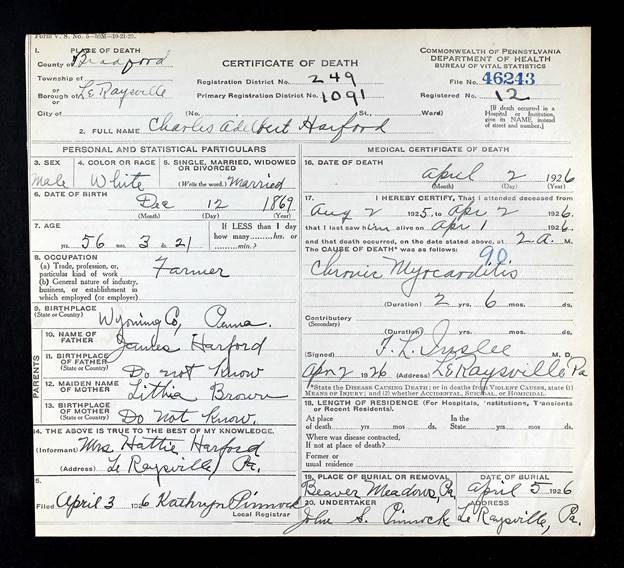 Form V. S. No. 5-10-21-25.
1. PLACE OF DEATH
County of Bradford
Township of
or
Borough of LeRaysville
City of (No. St., Ward)
CERTIFICATE OF DEATH
Registration District No. 249
Primary Registration District No. 1091
COMMONWEALTH OF PENNSYLVANIA
DEPARTMENT OF HEALTH
BUREAU OF VITAL STATISTICS
File No. 46243
Registered No. 12
[If death occurred in a Hospital or Institution, give its NAME, instead of street and number.]
2. FULL NAME Charles Adelbert Harford
PERSONAL AND STATISTICAL PARTICULARS
3. SEX Male
4. COLOR OR RACE White
5. SINGLE, MARRIED, WIDOWED OR DIVORCED
(Write the word.) Married
6. DATE OF BIRTH
Dec 12 1869
(Month) (Day) (Year)
7. AGE
56 yrs. 3 mos. 21
If LESS than 1 day how many hrs. or min.?
8. OCCUPATION
(a) Trade, profession, or particular kind of work Farmer
(b) General nature of industry, business, or establishment in which employed (or employer)
9. BIRTHPLACE
(State or Country) Wyoming Co, Penna.
PARENTS
10. NAME OF FATHER James Harford
11. BIRTHPLACE OF FATHER
(State or Country) Do not know
12. MAIDEN NAME OF MOTHER Lithia Brown
13. BIRTHPLACE OF MOTHER
(State or Country) Do not know.
14. THE ABOVE IS TRUE TO THE BEST OF MY KNOWLEDGE.
(Informant) Mrs Hattie Harford
(Address) Le Raysville, Pa.
5.
Filed April 3 1926 Kathryn Pinnock
Local Registrar
MEDICAL CERTIFICATE OF DEATH
16. DATE OF DEATH
April 2 1926
(Month) (Day) (Year)
17. I HEREBY CERTIFY, That I attended deceased from
Aug 2 1925, to Apr 2 1926.
that I last saw him alive on Apr 1 1926.
and that death occurred, on the date stated above, at 2 a. M.
The CAUSE OF DEATH* was as follows: 90
Chronic Myocarditis
(Duration) 2 yrs. 6 mos. ds.
Contributory
(Secondary)
(Duration) yrs. mos. ds.
(Signed) T. L. Inslee M. D.
Apr 2 1926 (Address) LeRaysville Pa
*State the DISEASE CAUSING DEATH; or in deaths from VIOLENT CAUSES, state (1) MEANS OF INJURY; and (2) whether ACCIDENTAL, SUICIDAL, or HOMICIDAL.
18. LENGTH OF RESIDENCE (For Hospitals, Institutions, Transients or Recent Residents).
At place of death yrs. mos. ds. In the State yrs. mos. ds.
Where was disease contracted,
If not at place of death?
Former or
usual residence
19. PLACE OF BURIAL OR REMOVAL Beaver Meadows, Pa.
DATE OF BURIAL April 5 1926
20. UNDERTAKER John S. Pinnock
ADDRESS Le Raysville, Pa.